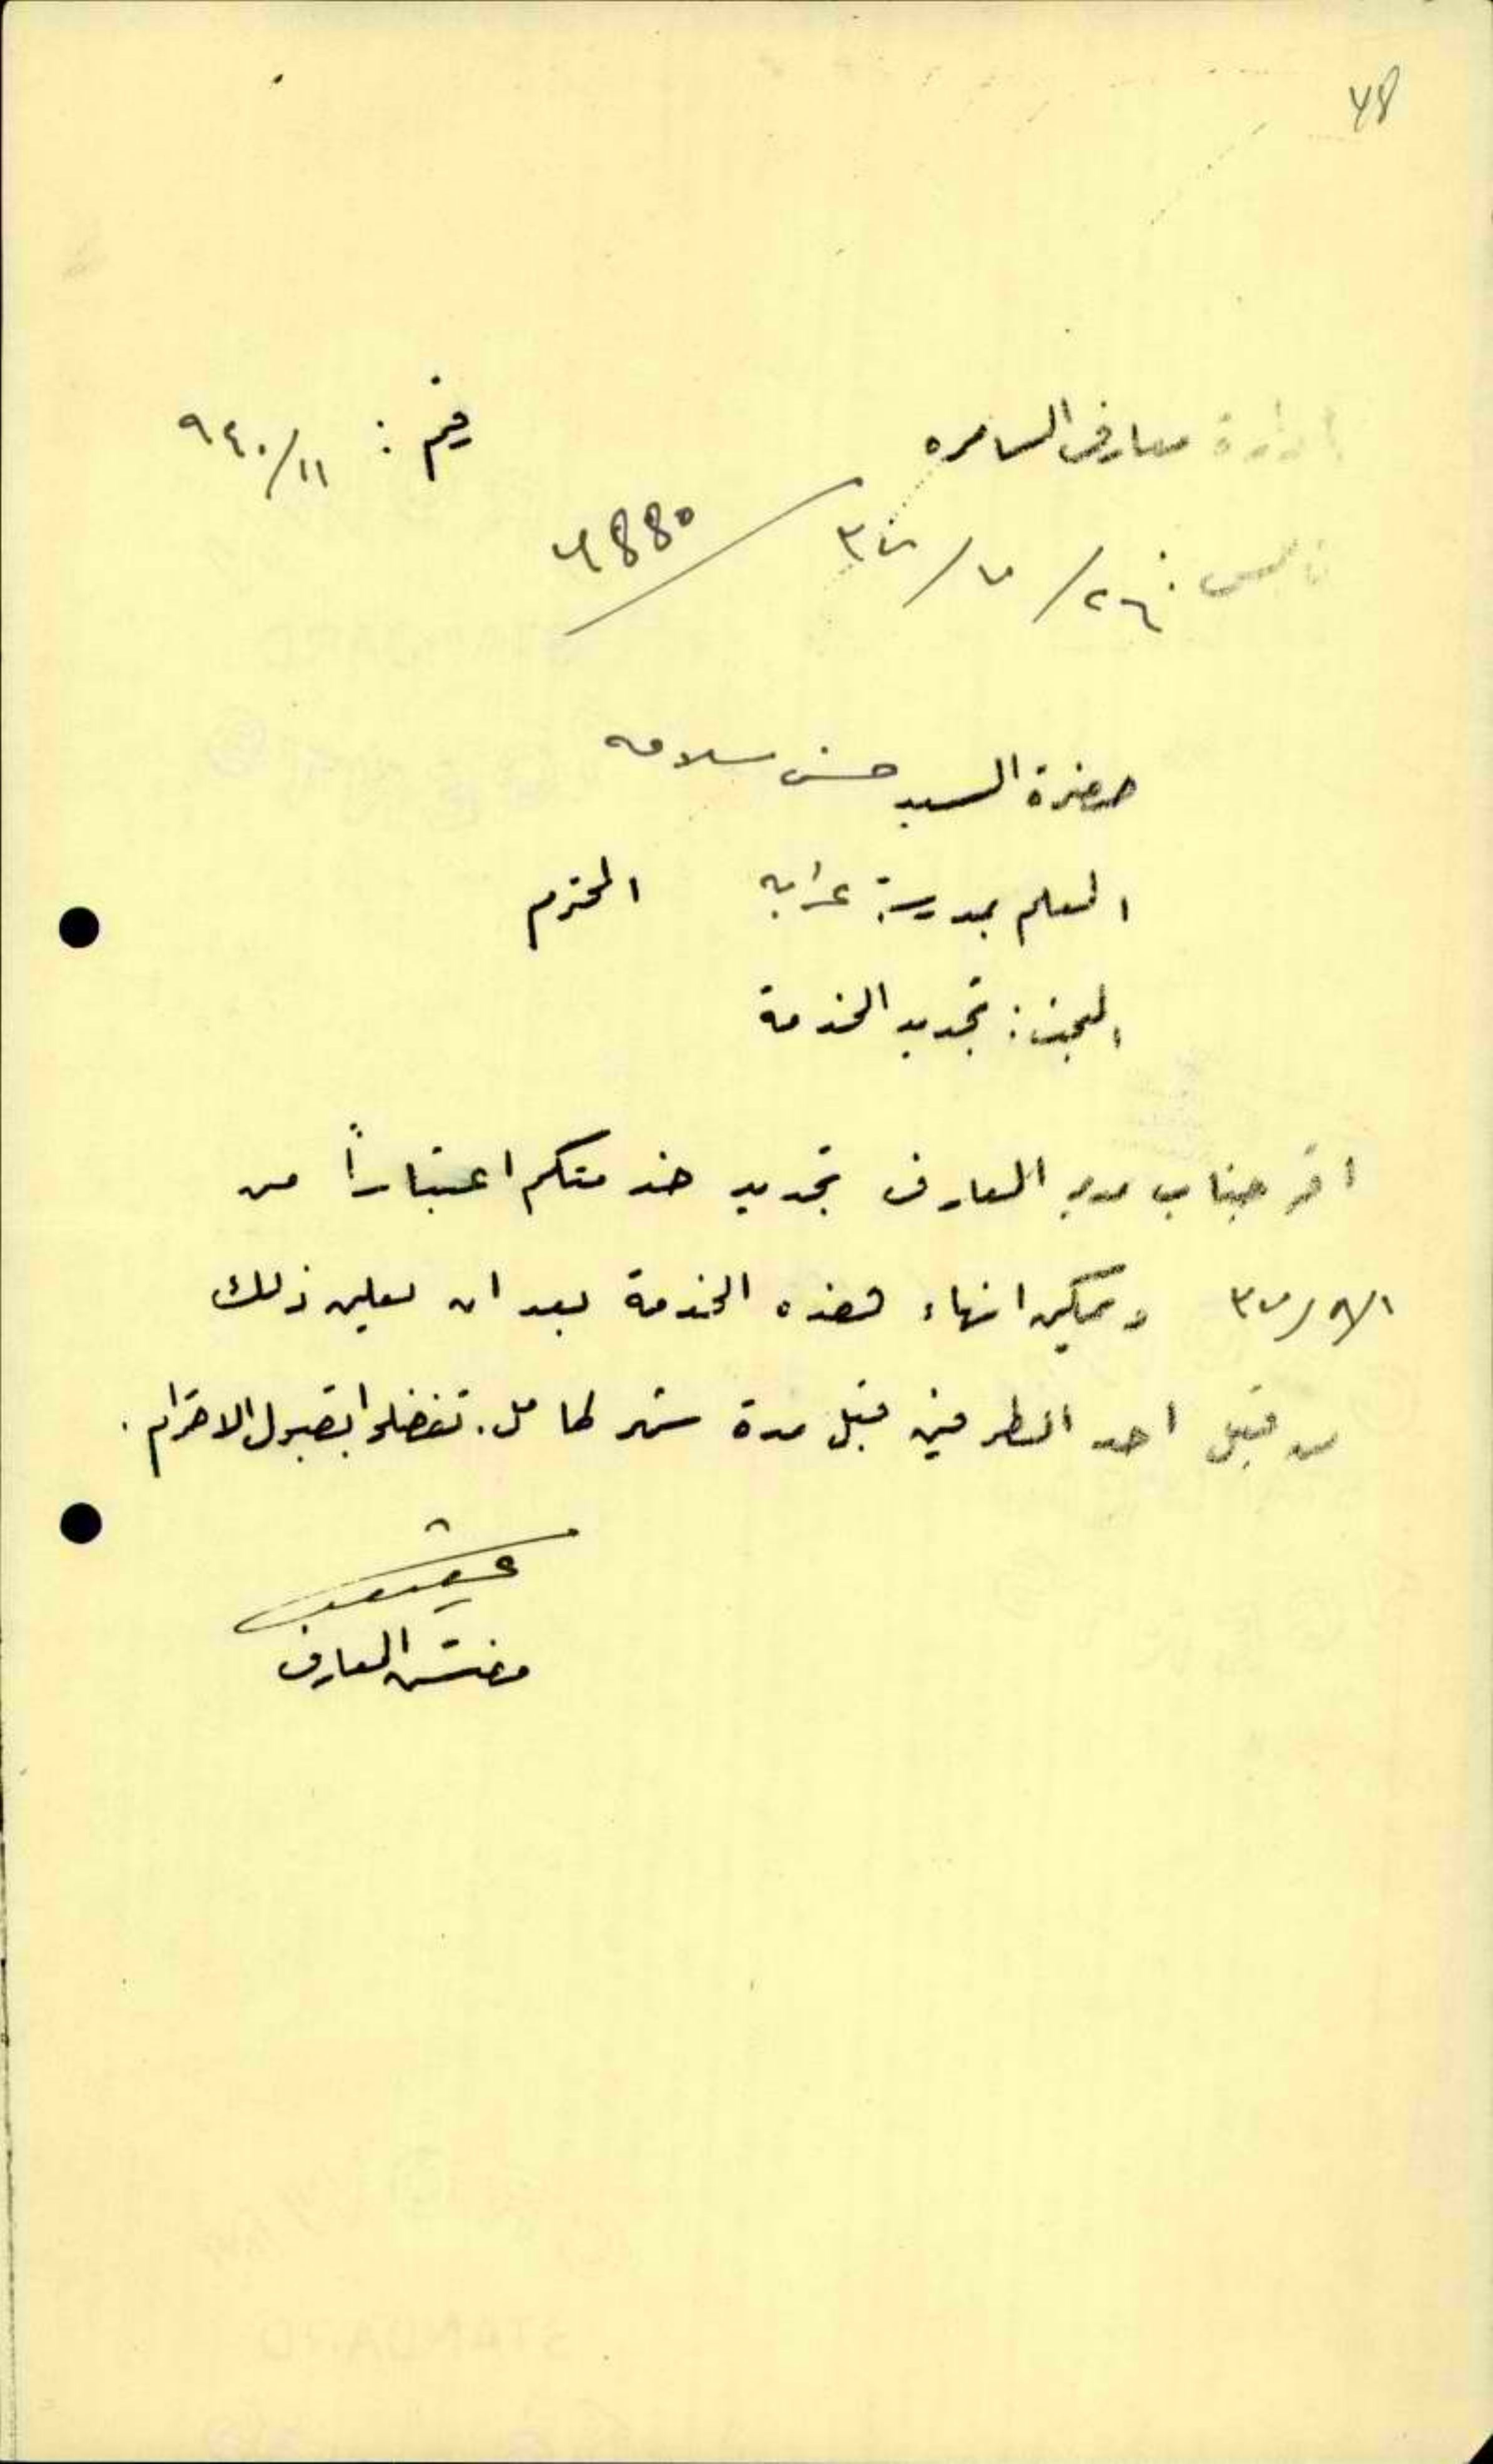 48
ادارة معارف السامره
رقم : ١١/٩٤٠
نابلس : ٢٦/٧/٣٧
حضرة السيد حسن سلامه
المعلم بمدرسة عرابه المحترم
البحث : تجديد الخدمة
اقر جناب مدير المعارف تجديد خدمتكم اعتباراً من
١/٨/٣٧ ويمكن انهاء هذه الخدمة بعد ان يعلن ذلك
من قبل احد الطرفين قبل مدة شهر كامل. تفضلوا بقبول الاحترام.
مفتش المعارف